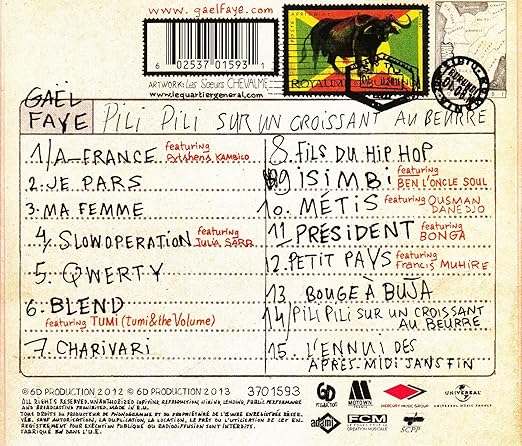 www.gaelfaye.com
6 02537 01593 1
ARTWORK: Les Sœurs CHEVALME
www.lequartiergeneral.com
GAËL FAYE
PILI PILI SUR UN CROISSANT AU BEURRE
1/A-FRANCE featuring Pytshens KAMBILO
2. JE PARS
3. MA FEMME
4. SLOWOPERATION featuring Julia SARR
5. QWERTY
6. BLEND
featuring TUMI (Tumi & the Volume)
7. CHARIVARI
8. FILS DU HIP HOP
9 iSiMBi featuring BEN L'ONCLE SOUL
10. MÉTIS featuring OUSMAN DANEDJO
11 PRÉSIDENT featuring BONGA
12. PETIT PAYS featuring Francis MUHIRE
13. BOUGE À BUJA
14/ PILI PILI SUR UN CROISSANT
AU BEURRE
15. L'ENNUI DES
APRÈS-MIDI SANS FIN
© 6D PRODUCTION 2012 © 6D PRODUCTION 2013 3701593
ALL RIGHTS RESERVED. UNAUTHORIZED COPYING, REPRODUCTION, HIRING, LENDING, PUBLIC PERFORMANCE
AND BROADCASTING PROHIBITED. MADE IN E.U.
TOUS DROITS DU PRODUCTEUR DE PHONOGRAMMES ET DU PROPRIÉTAIRE DE L'ŒUVRE ENREGISTRÉE RÉSER-
VÉS. SAUF AUTORISATION, LA DUPLICATION, LA LOCATION, LE PRÊT OU L'UTILISATION DE CET EN-
REGISTREMENT POUR EXÉCUTION PUBLIQUE OU RADIODIFFUSION SONT INTERDITS.
FABRIQUÉ EN DANS L'U.E.
6D PRODUCTION
MOTOWN FRANCE
MERCURY MUSIC GROUP
UNIVERSAL
adami
FCM
SCPP